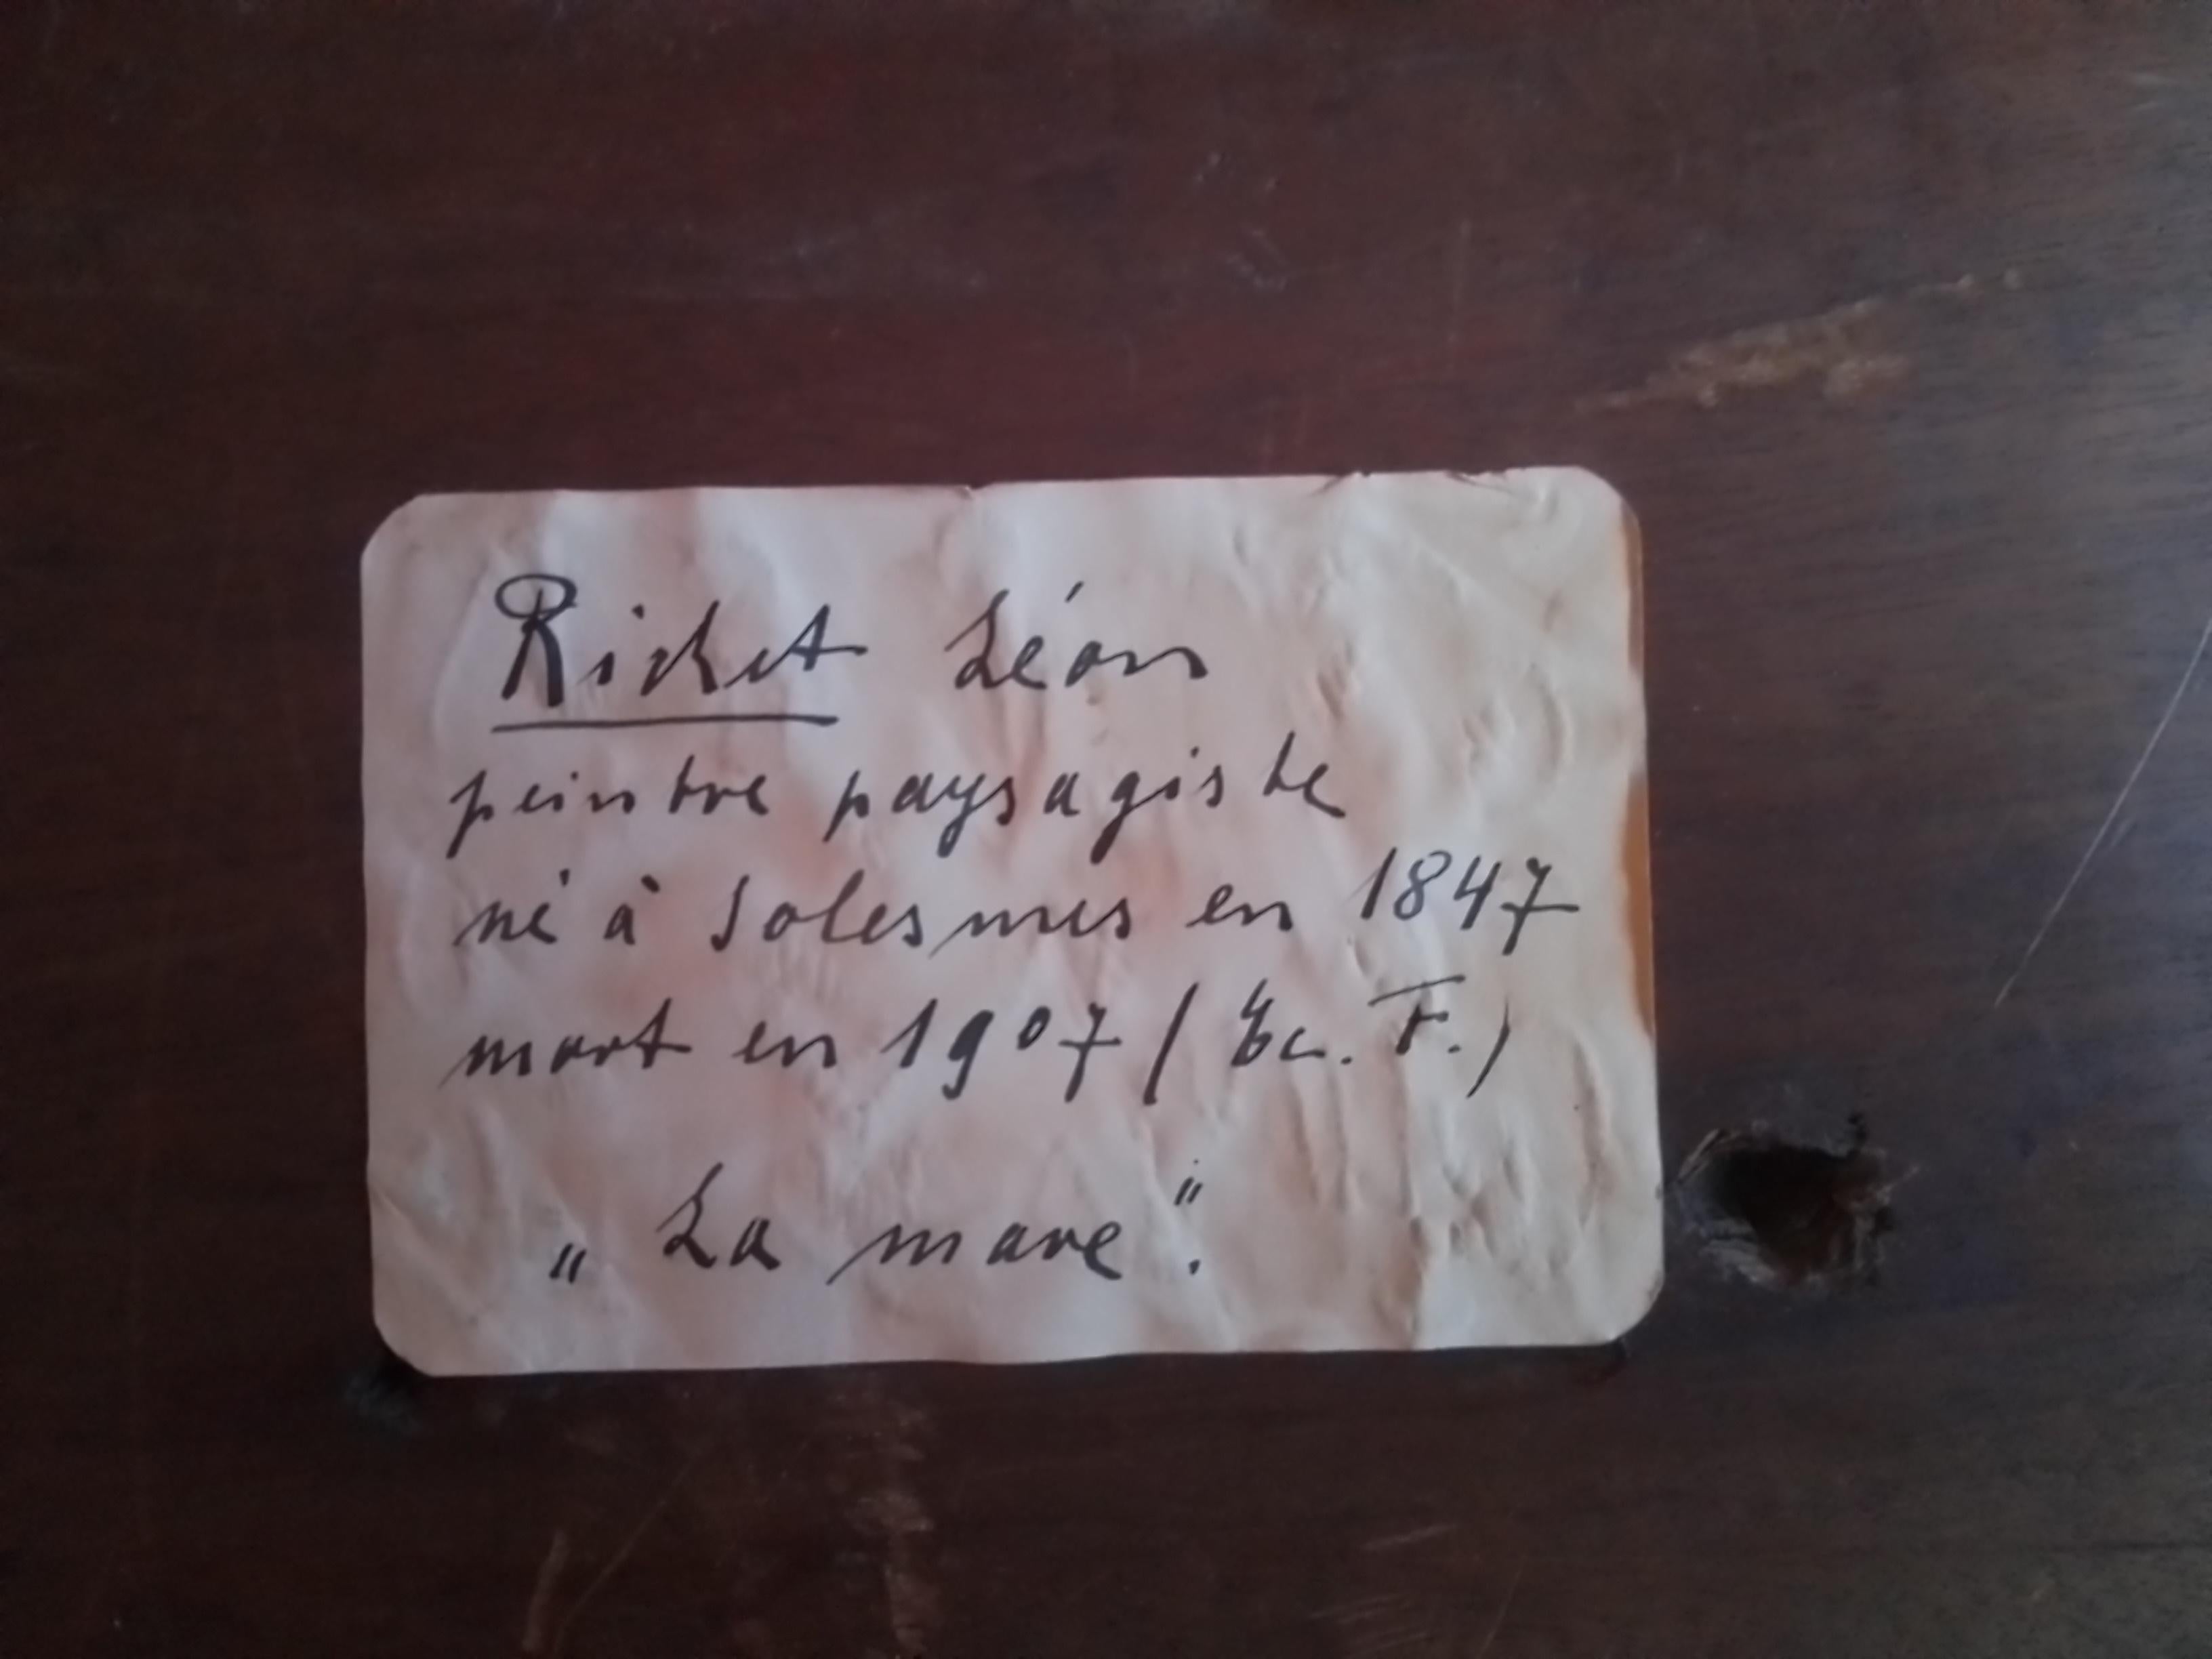 Richet Léon
peintre paysagiste
né à Solesmes en 1847
mort en 1907 (Ec. F.)
„ La mare ".